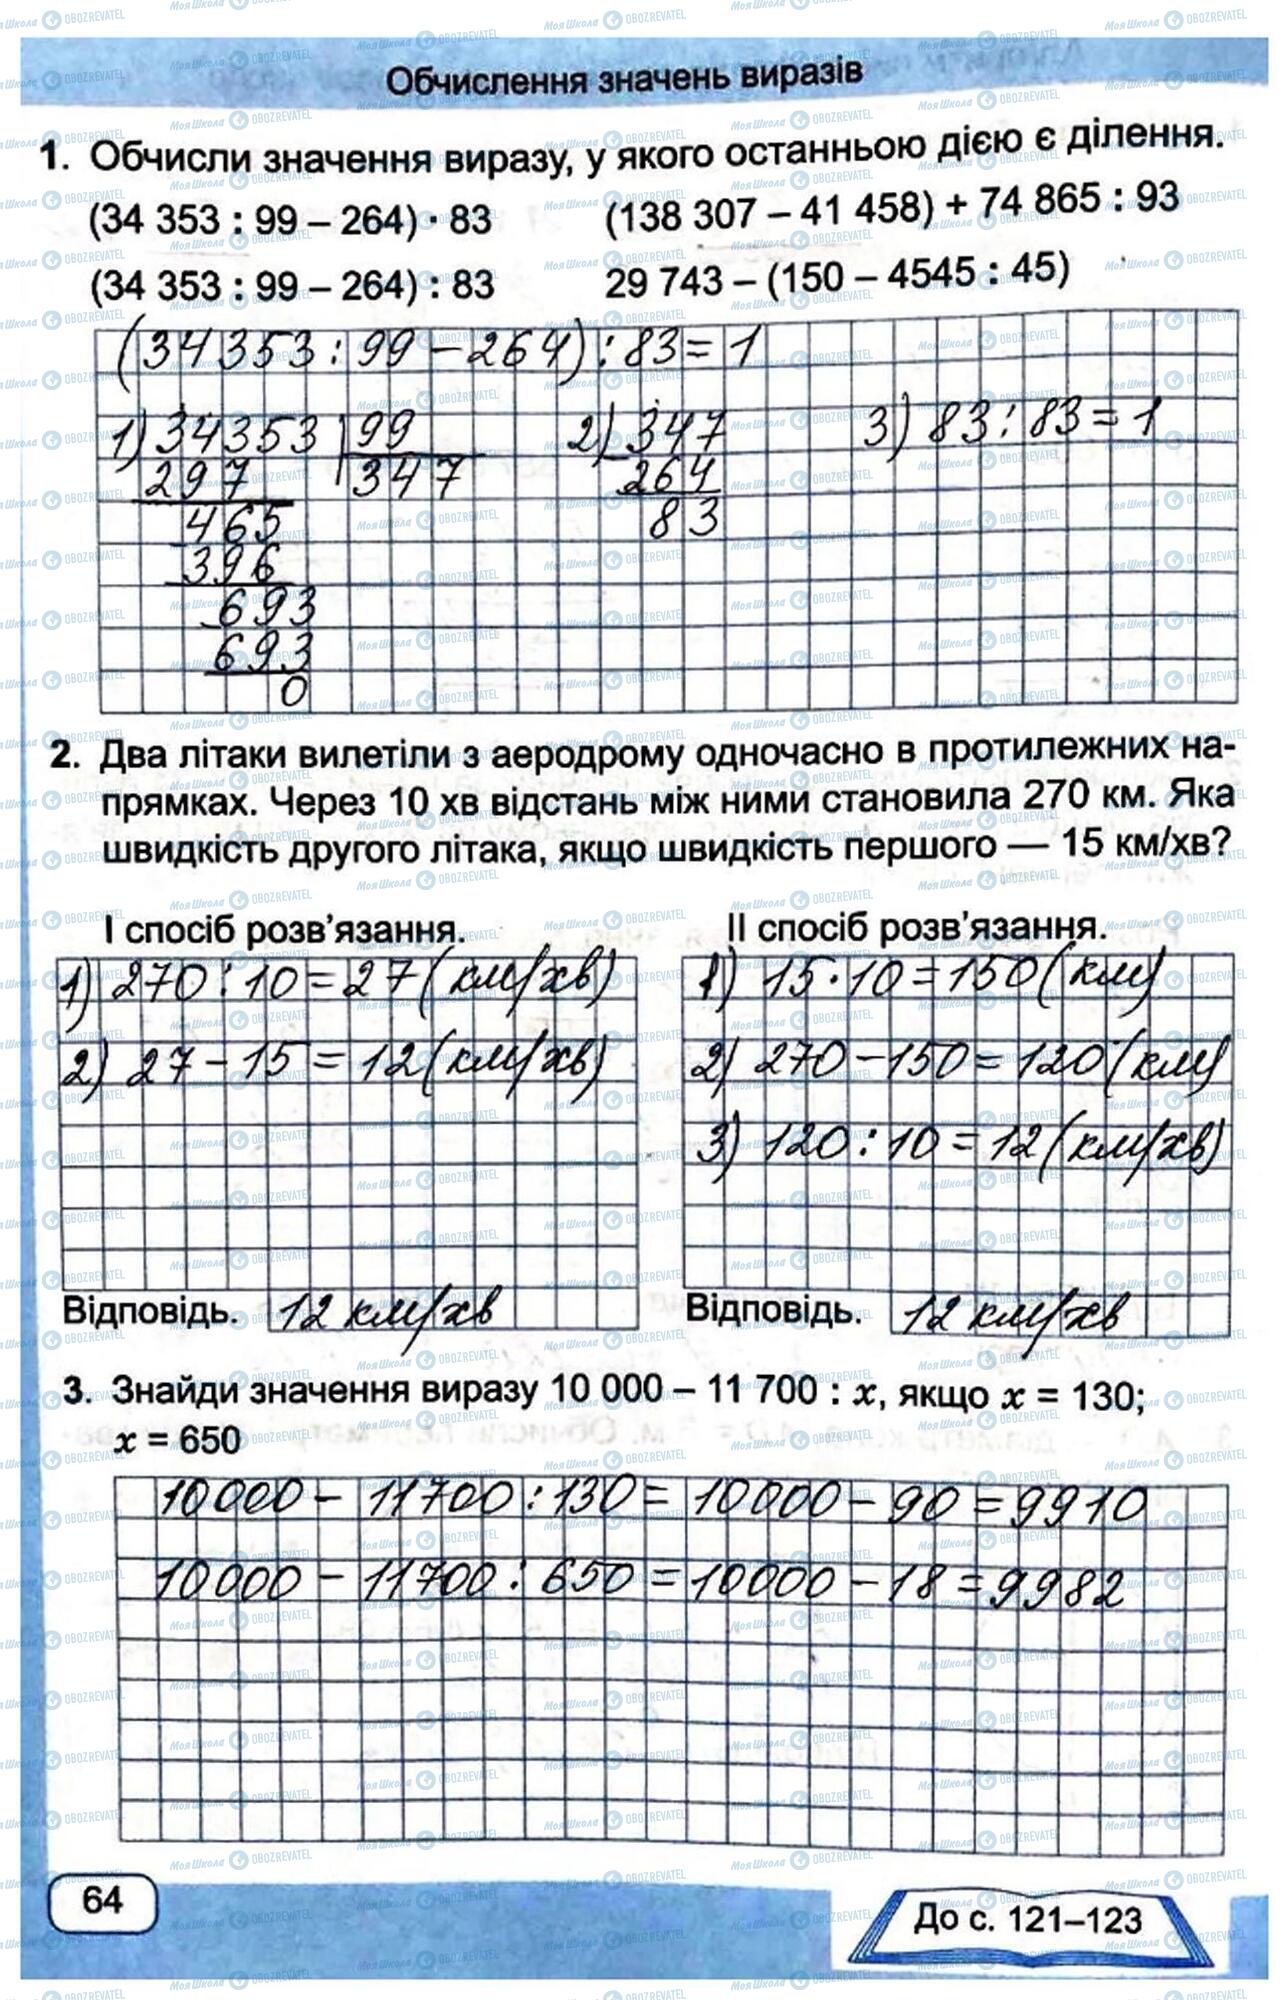 Обчислення значень виразів
1. Обчисли значення виразу, у якого останньою дією є ділення.
(34 353 : 99 – 264) · 83
(138 307 – 41 458) + 74 865 : 93
(34 353 : 99 – 264) : 83
29 743 – (150 – 4545 : 45)
(34353 : 99 – 264) : 83 = 1
1) 34353 | 99
297 | 347
465
396
693
693
0
2) 347
264
83
3) 83 : 83 = 1
2. Два літаки вилетіли з аеродрому одночасно в протилежних на-
прямках. Через 10 хв відстань між ними становила 270 км. Яка
швидкість другого літака, якщо швидкість першого — 15 км/хв?
І спосіб розв’язання.
1) 270 : 10 = 27 (км/хв)
2) 27 – 15 = 12 (км/хв)
Відповідь. 12 км/хв
ІІ спосіб розв’язання.
1) 15 · 10 = 150 (км)
2) 270 – 150 = 120 (км)
3) 120 : 10 = 12 (км/хв)
Відповідь. 12 км/хв
3. Знайди значення виразу 10 000 – 11 700 : x, якщо x = 130;
x = 650
10000 – 11700 : 130 = 10000 – 90 = 9910
10000 – 11700 : 650 = 10000 – 18 = 9982
64
До с. 121–123
МояШкола OBOZREVATEL